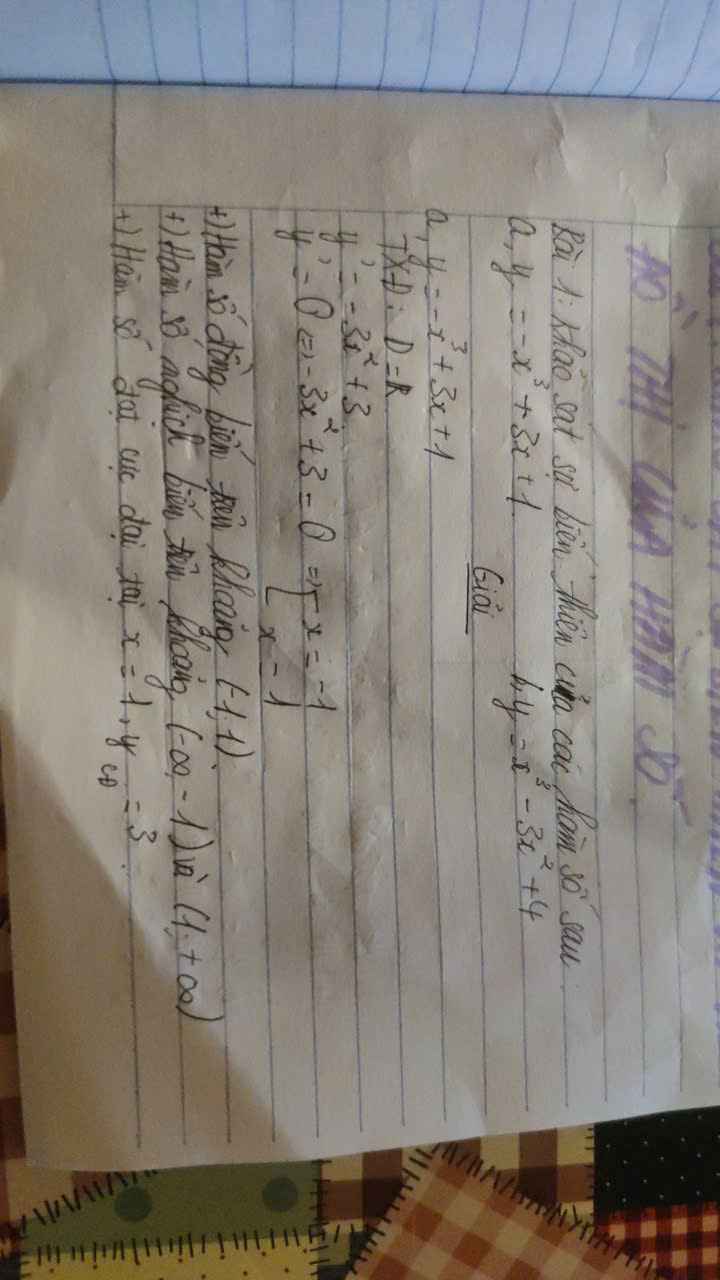 ĐỒ THỊ CỦA HÀM SỐ
Bài 1: Khảo sát sự biến thiên của các hàm số sau
a, y = -x³ + 3x + 1 b, y = x³ - 3x² + 4
Giải
a, y = -x³ + 3x + 1
TXĐ: D = R
y' = -3x² + 3
y' = 0 <=> -3x² + 3 = 0 => [ x = -1
x = 1
+) Hàm số đồng biến trên khoảng (-1, 1)
+) Hàm số nghịch biến trên khoảng (-∞, -1) và (1, +∞)
+) Hàm số đạt cực đại tại x = 1, y CĐ = 3